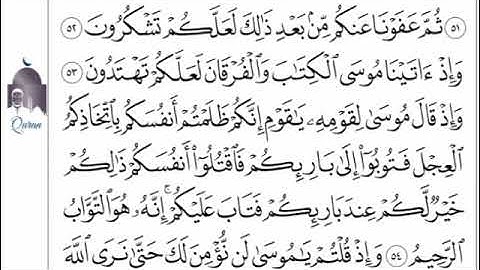 ٥١ ثُمَّ عَفَوْنَا عَنكُم مِّنۢ بَعْدِ ذَٰلِكَ لَعَلَّكُمْ تَشْكُرُونَ ٥٢
وَإِذْ ءَاتَيْنَا مُوسَى ٱلْكِتَٰبَ وَٱلْفُرْقَانَ لَعَلَّكُمْ تَهْتَدُونَ ٥٣
وَإِذْ قَالَ مُوسَىٰ لِقَوْمِهِۦ يَٰقَوْمِ إِنَّكُمْ ظَلَمْتُمْ أَنفُسَكُم بِٱتِّخَاذِكُمُ
ٱلْعِجْلَ فَتُوبُوٓا۟ إِلَىٰ بَارِئِكُمْ فَٱقْتُلُوٓا۟ أَنفُسَكُمْ ذَٰلِكُمْ
خَيْرٌ لَّكُمْ عِندَ بَارِئِكُمْ فَتَابَ عَلَيْكُمْ ۚ إِنَّهُۥ هُوَ ٱلتَّوَّابُ
ٱلرَّحِيمُ ٥٤ وَإِذْ قُلْتُمْ يَٰمُوسَىٰ لَن نُّؤْمِنَ لَكَ حَتَّىٰ نَرَى ٱللَّهَ
Quran